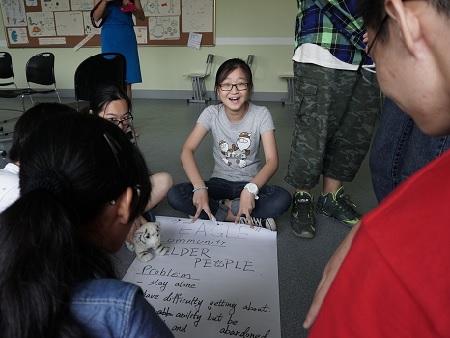 EAGLE
community
OLDER
PEOPLE
Problem
- stay alone
have difficulty getting about.
ability but be
and abandoned